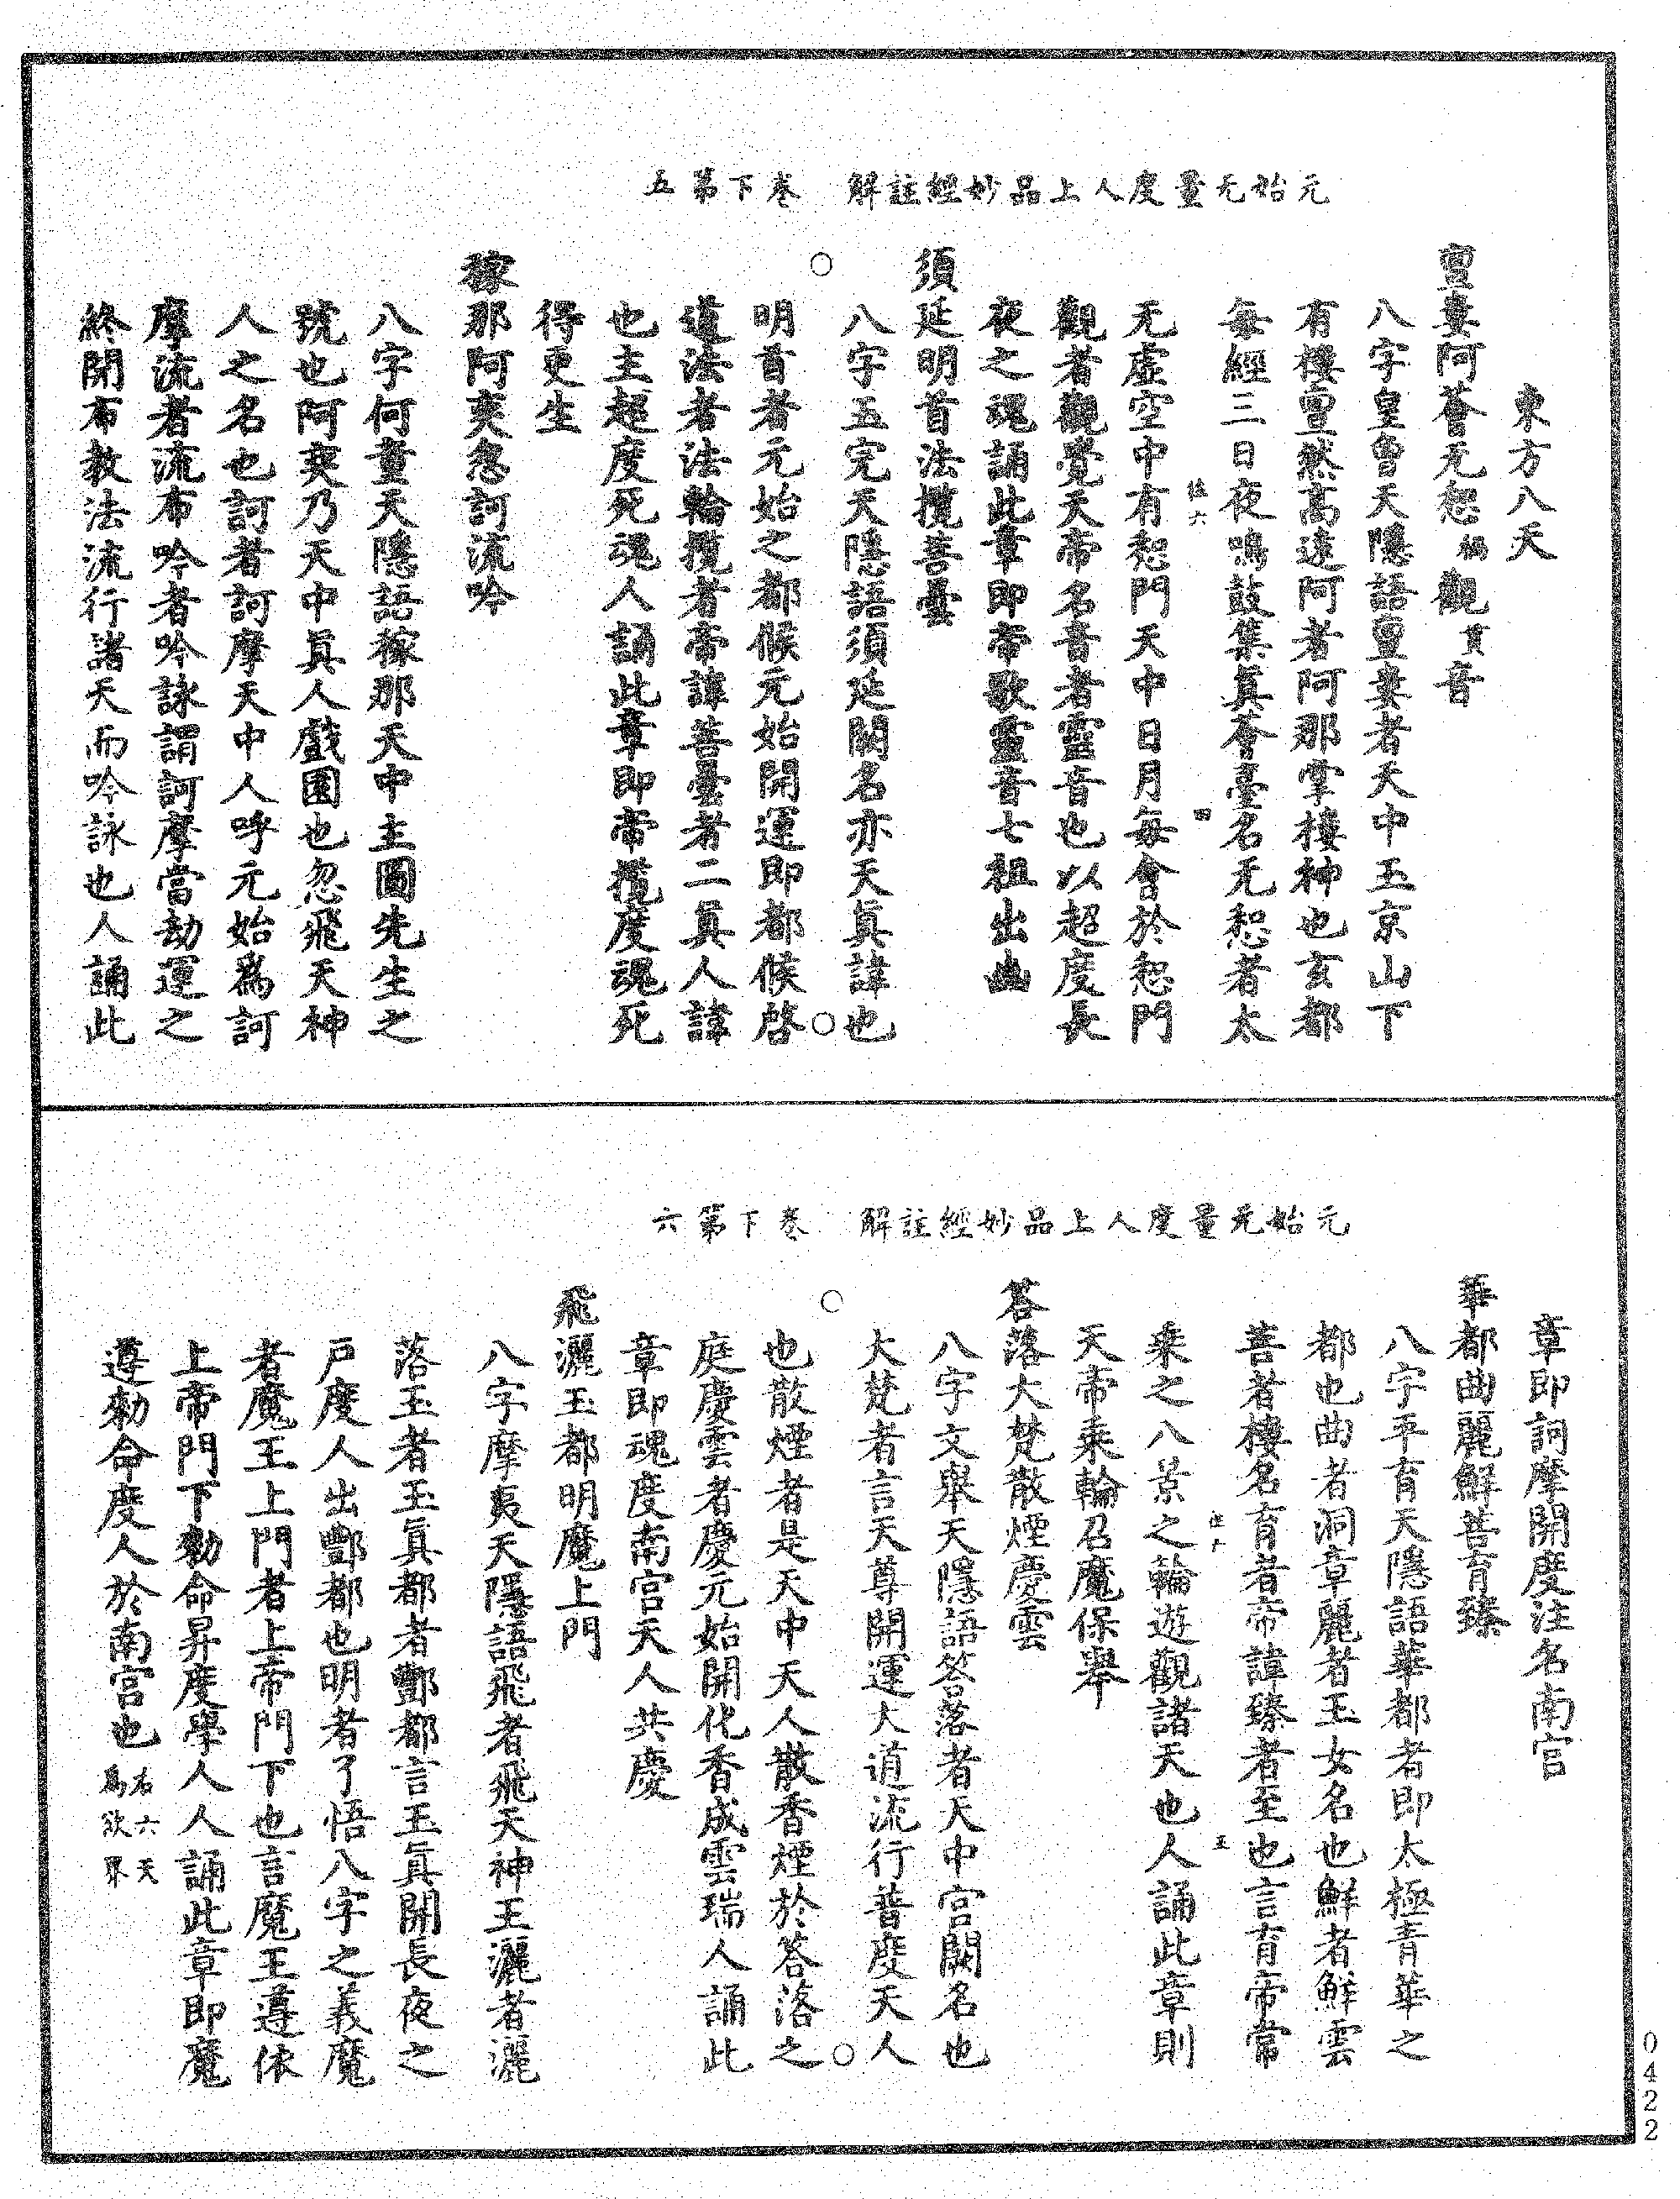 元始无量度人上品妙經註解　卷下第五
東方八天
亶婁阿薈无惒觀音
八字皇曾天隱語亶婁者天中玉京山下
有樓亶然高遠阿者阿那掌樓神也玄都
每經三日夜鳴鼓集眞薈臺名无惒者太
无虛空中有惒門天中日月每會於惒門
觀者觀覺天帝名音者靈音也以超度長
夜之魂誦此章即帝歌靈音七祖出幽
須延明首法攬菩曇
八字五完天隱語須延闕名亦天眞諱也
明首者元始之都候元始開運即都候啓
道法者法輪攬者帝諱菩曇者二眞人諱
也主超度死魂人誦此章即帝攬度魂死
得更生
稼那阿奕忽訶流吟
八字何童天隱語稼那天中主圃先生之
號也阿奕乃天中眞人戲園也忽飛天神
人之名也訶者訶摩天中人呼元始爲訶
摩流者流布吟者吟詠謂訶摩當劫運之
終開布教法流行諸天而吟詠也人誦此
元始无量度人上品妙經註解　卷下第六
章即訶摩開度注名南宮
華都曲麗鮮菩育臻
八字平育天隱語華都者即太極青華之
都也曲者洞章麗者玉女名也鮮者鮮雲
菩者樓名育者帝諱臻者至也言育帝常
乘之八景之輪遊觀諸天也人誦此章則
天帝乘輪召魔保舉
答落大梵散煙慶雲
八字文舉天隱語答落者天中宮闕名也
大梵者言天尊開運大道流行普度天人
也散煙者是天中天人散香煙於答洛之
庭慶雲者慶元始開化香成雲瑞人誦此
章即魂度南宮天人共慶
飛灑玉都明魔上門
八字摩夷天隱語飛者飛天神王灑者灑
落玉者玉眞都者酆都言玉眞開長夜之
戸度人出酆都也明者了悟八字之義魔
者魔王上門者上帝門下也言魔王遵依
上帝門下勑命昇度學人人誦此章即魔
遵勑命度人於南宮也右六天爲欲界
0422